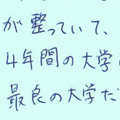 が整っていて、
4年間の大学
最良の大学だ